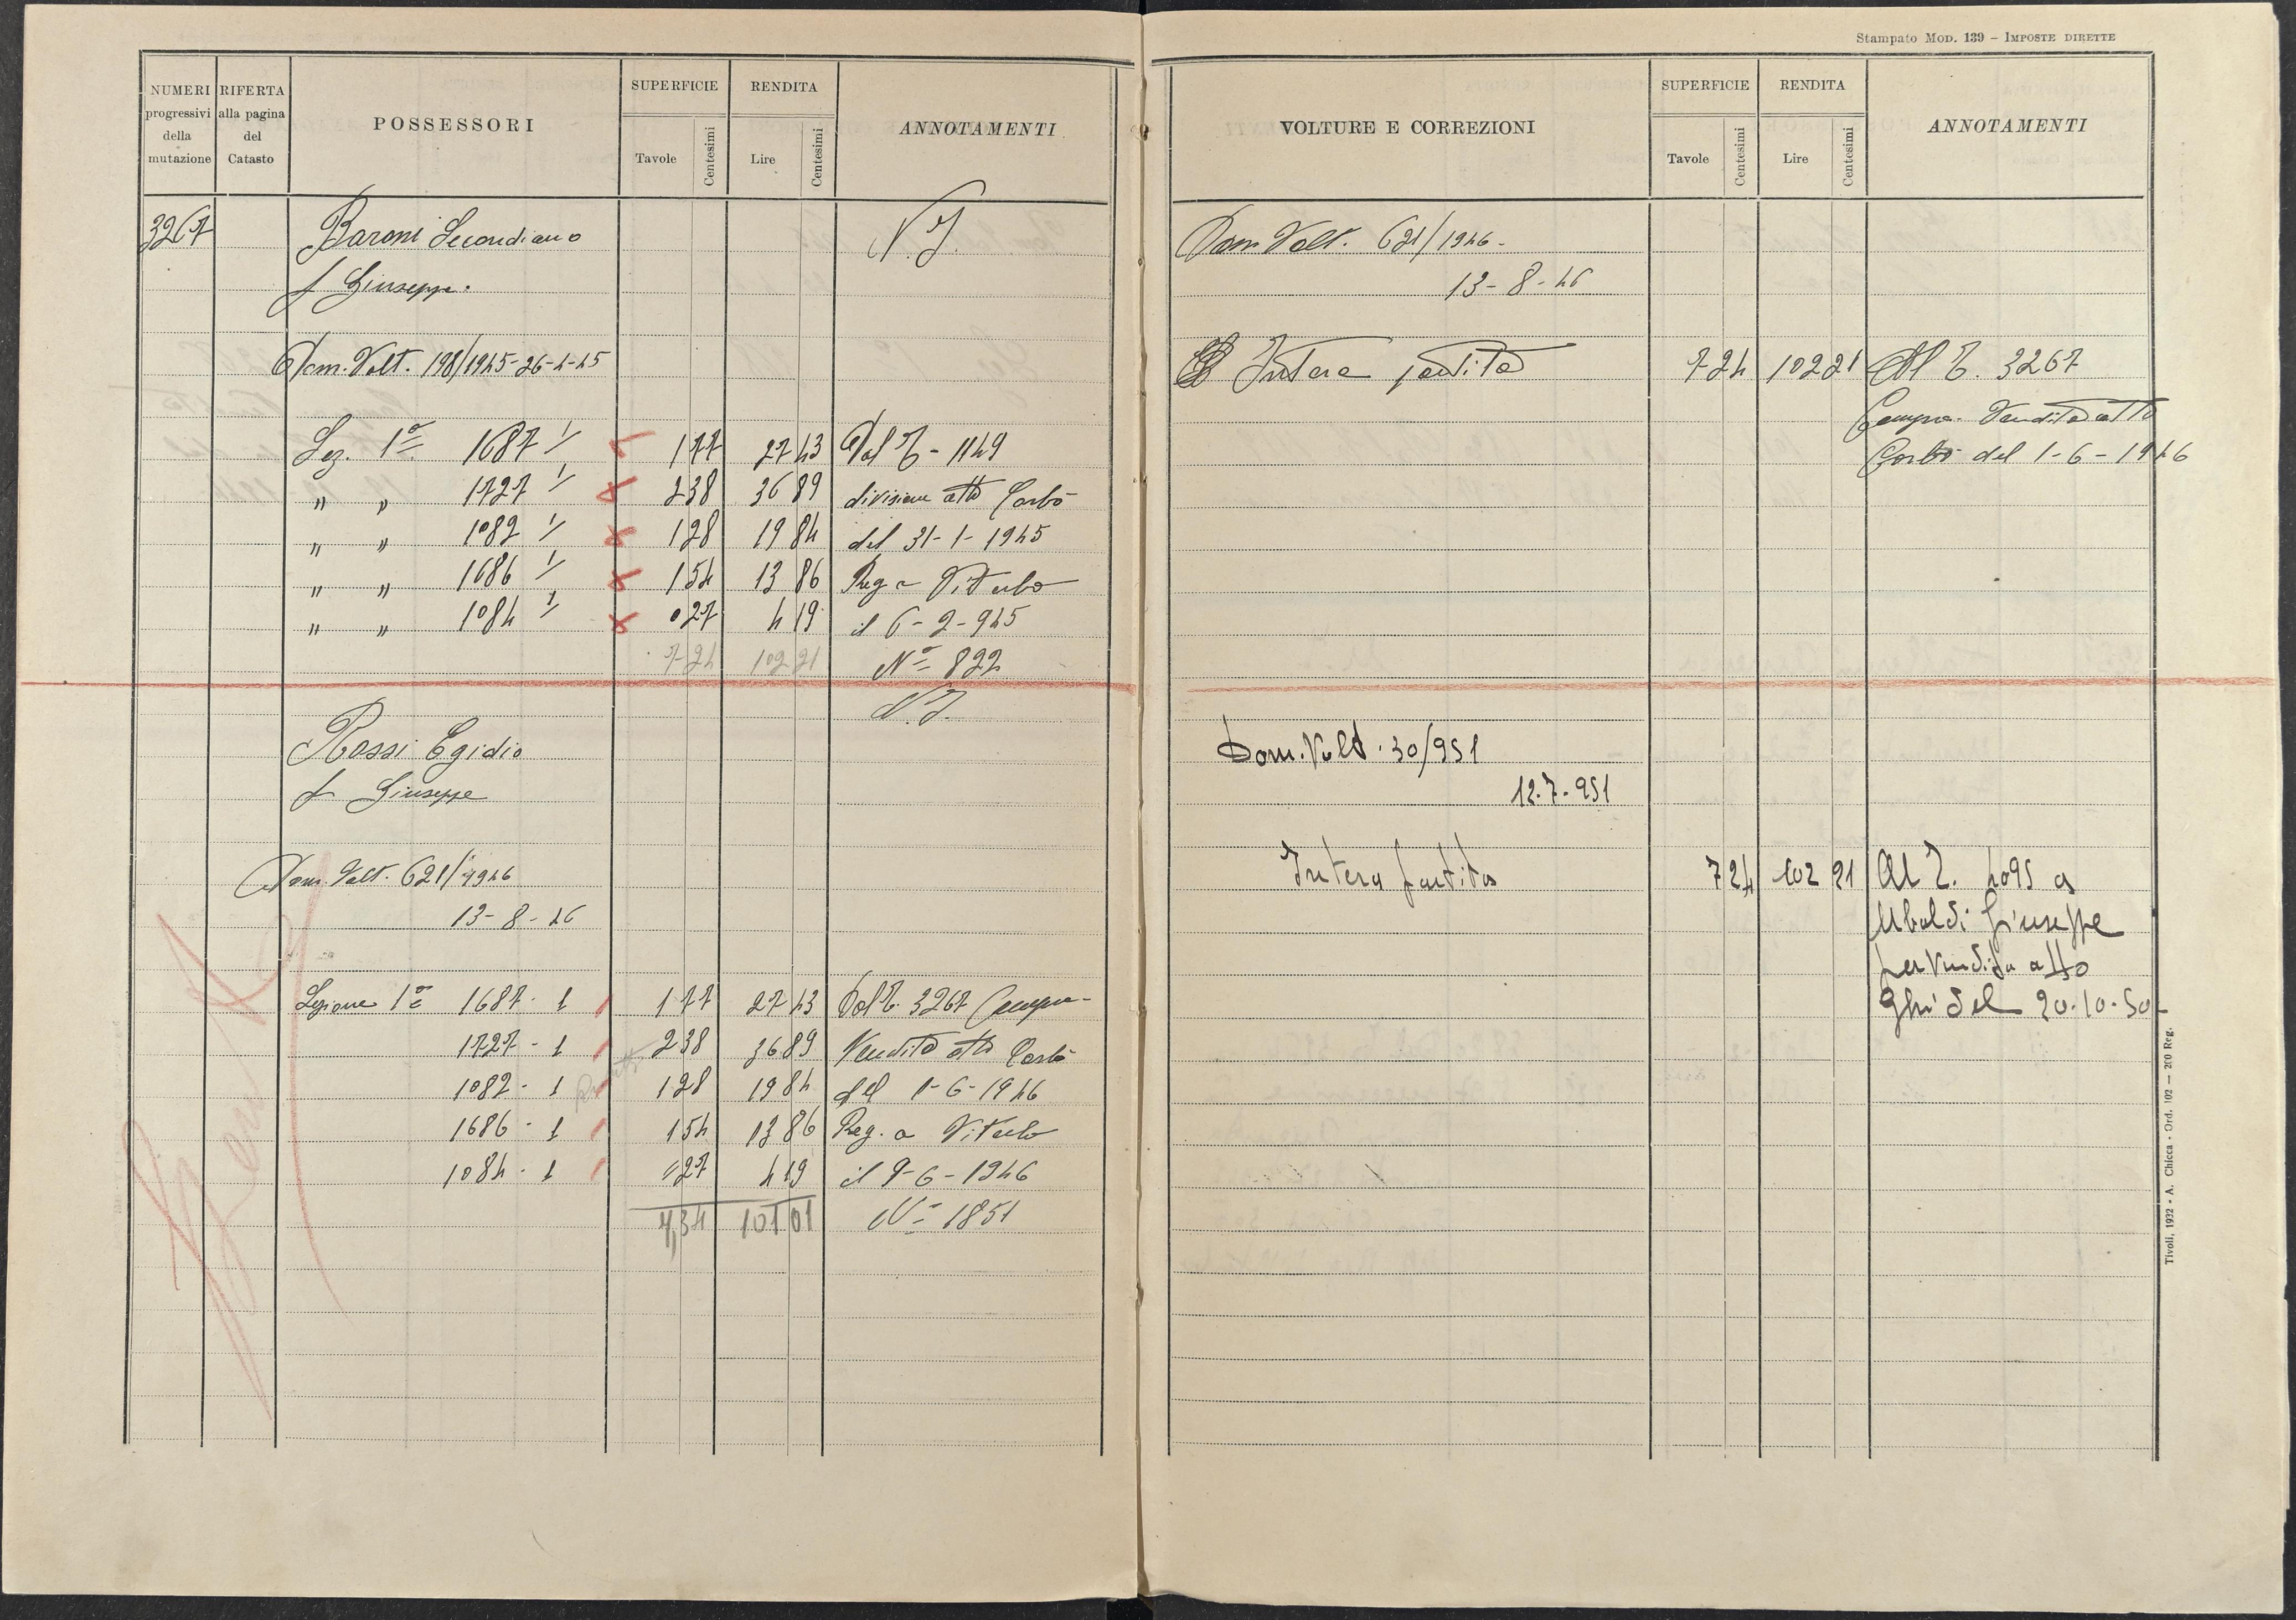 Stampato Mod. 139 – Imposte dirette
NUMERI progressivi della mutazione
RIFERTA alla pagina del Catasto
POSSESSORI
SUPERFICIE
Tavole
Centesimi
RENDITA
Lire
Centesimi
ANNOTAMENTI
3267 Baroni Secondiano N.I.
f Giuseppe.
Dom. Volt. 198/1945-26-4-45
Sez. 1ª 1687 1/ 1 77 27 43 Dal T - 1149
" " 1727 1/ 2 38 36 89 divisione atto Carbò
" " 1082 1/ 1 28 19 84 del 31-1-1945
" " 1686 1/ 1 54 13 86 Reg a Viterbo
" " 1084 1/ 0 27 4 19 il 6-2-945
7 24 102 21 Nº 822
N.I.
Rossi Egidio
f Giuseppe
Dom. Volt. 621/1946
13-8-46
Sezione 1ª 1687 - 1 1 77 27 43 Dal T. 3267 Compra-
1727 - 1 2 38 36 89 Vendita atto Carbò
1082 - 1 1 28 19 84 del 1-6-1946
1686 - 1 1 54 13 86 Reg. a Viterbo
1084 - 1 " 27 4 19 il 9-6-1946
7,34 101 01 Nº 1851
VOLTURE E CORREZIONI
SUPERFICIE
Tavole
Centesimi
RENDITA
Lire
Centesimi
ANNOTAMENTI
Dom Volt. 621/1946-
13-8-46
Intera partita 7 24 102 21 Al T. 3267
Compra-Vendita atto
Carbò del 1-6-1946
Dom. Volt. 30/951
12.7.951
Intera partita 7 24 102 21 Al T. 4095 a
Ubaldi Giuseppe
per vendita atto
Ghi del 20.10.50
Tivoli, 1932 - A. Chicca - Ord. 102 — 200 Reg.